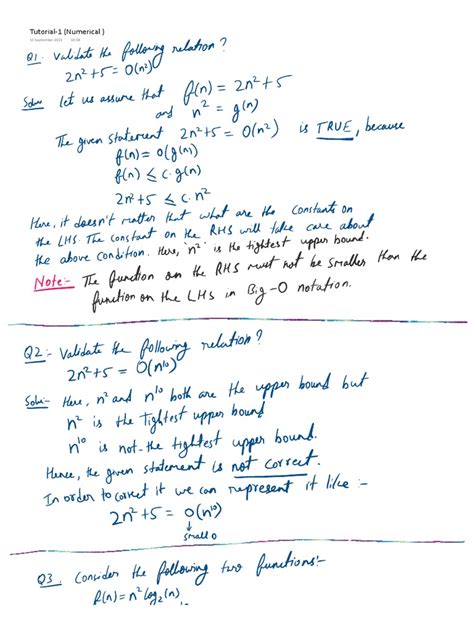 Tutorial-1 (Numerical )
10 September 2021 18:58
Q1. Validate the following relation?
2n²+5 = O(n²)
Soln Let us assume that f(n) = 2n²+5
and n² = g(n)
The given statement 2n²+5 = O(n²) is TRUE, because
f(n) = O(g(n))
f(n) ≤ c.g(n)
2n²+5 ≤ c.n²
Here, it doesn't matter that what are the constants on
the LHS. The constant on the RHS will take care about
the above condition. Here, 'n²' is the tightest upper bound.
Note:- The function on the RHS must not be smaller than the
function on the LHS in Big-O notation.
Q2:- Validate the following relation?
2n²+5 = O(n¹⁰)
Soln:- Here, n² and n¹⁰ both are the upper bound but
n² is the Tightest upper bound
n¹⁰ is not-the tightest upper bound.
Hence, the given statement is not correct.
In order to correct it we can represent it like :-
2n²+5 = o(n¹⁰)
↓
small o
Q3. Consider the following two functions:-
f(n) = n² log₂(n)